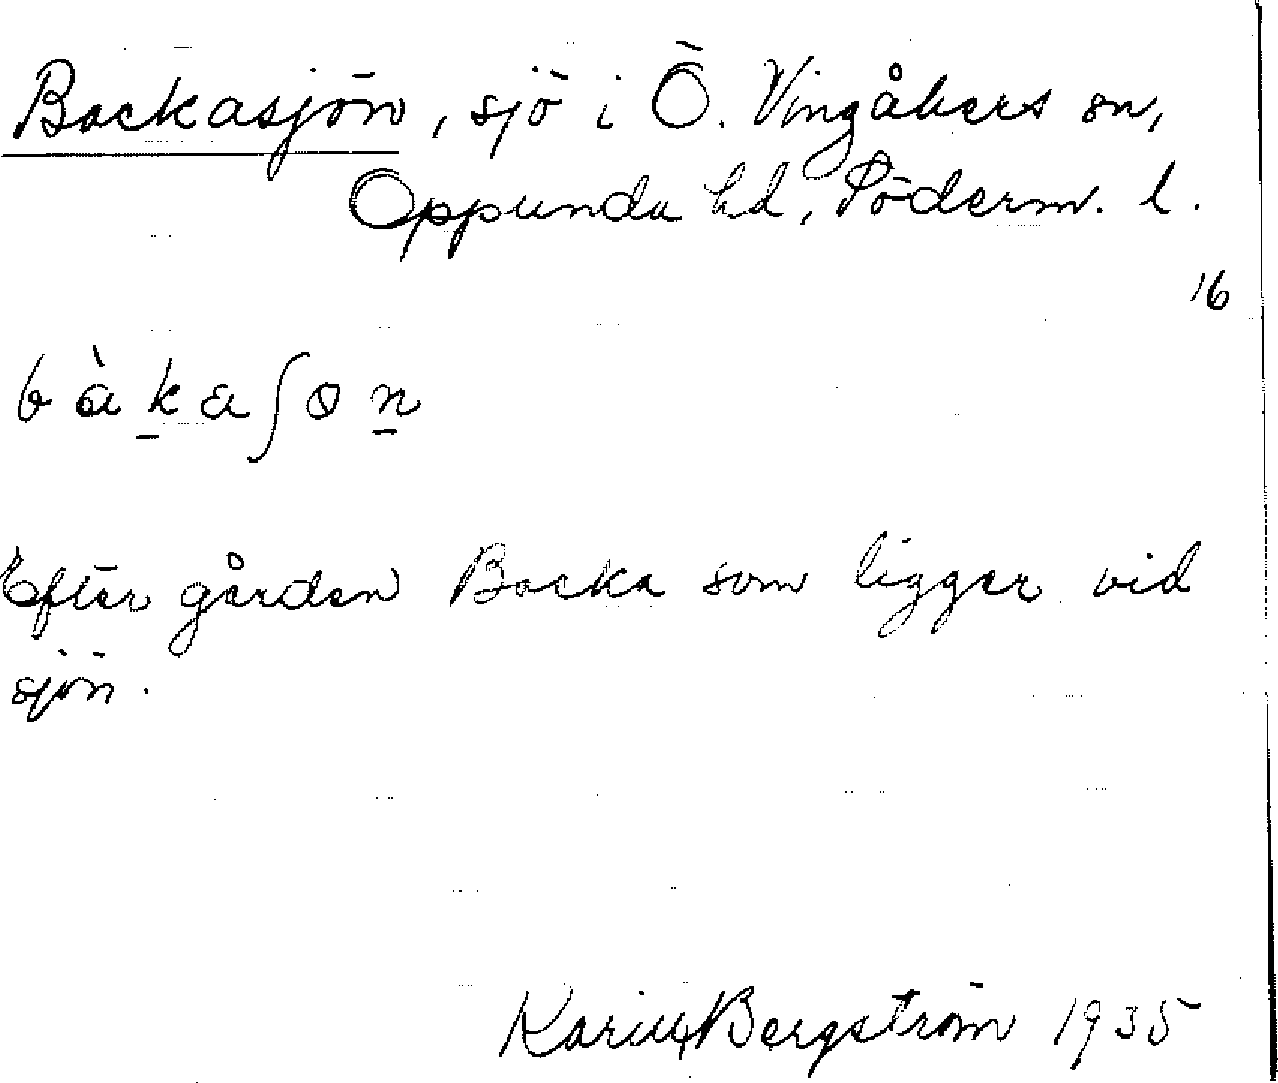 Backasjön, sjö i Ö. Vingåkers sn,
Oppunda hd, Söderm. l.
16
bàkaʃøn
Efter gården Backa som ligger vid
sjön.
Bergström 1935